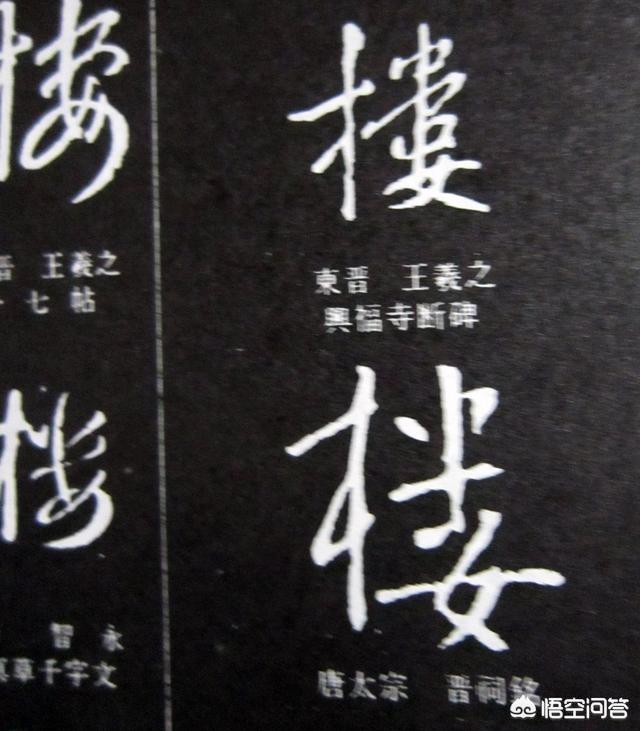 樓
東晋 王羲之
興福寺断碑
樓
唐太宗 晋祠銘
樓
晋 王羲之
十七帖
樓
智永
真草千字文
悟空问答